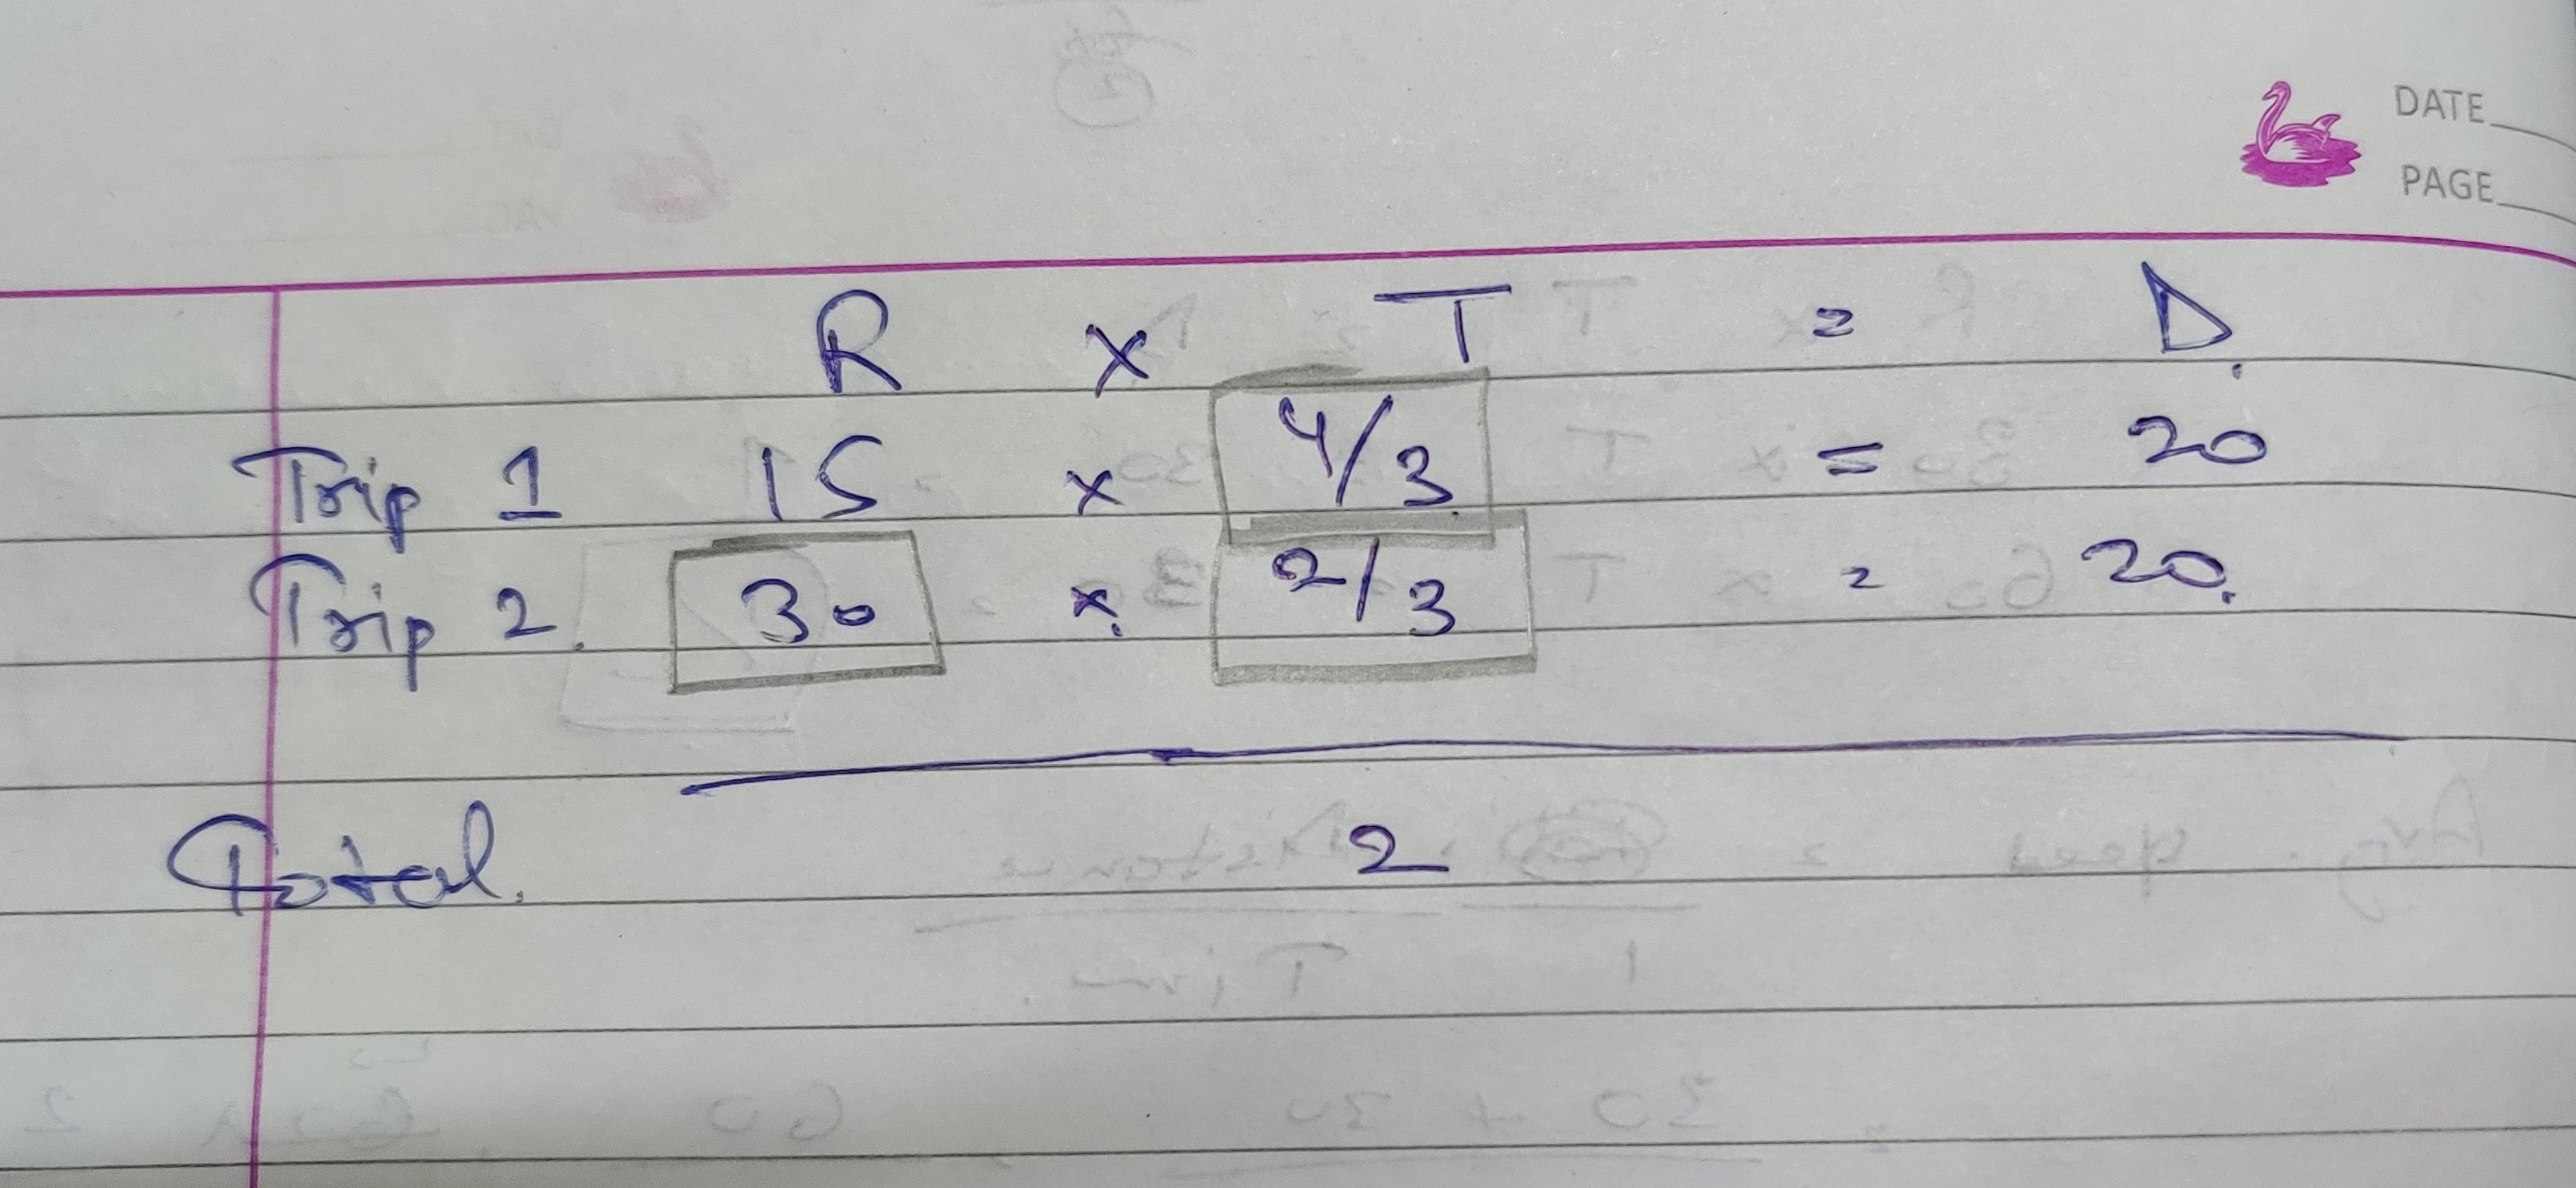 DATE
PAGE
R × T = D.
Trip 1 15 × 4/3 = 20
Trip 2. 30 × 2/3 = 20.
Total. 2